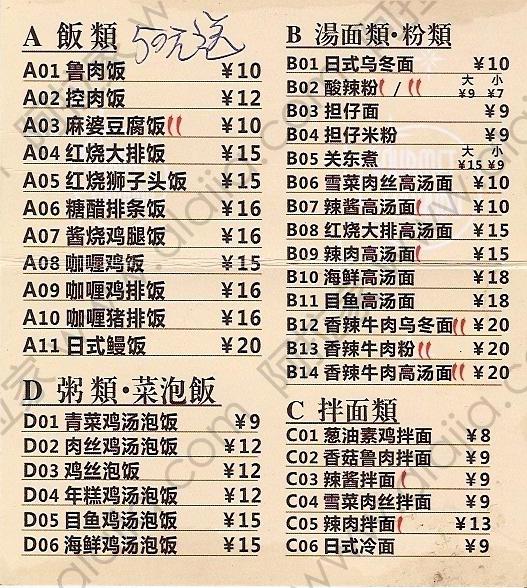 A 飯類 50元送
A01 鲁肉饭 ¥10
A02 控肉饭 ¥12
A03 麻婆豆腐饭 ¥10
A04 红烧大排饭 ¥15
A05 红烧狮子头饭 ¥15
A06 糖醋排条饭 ¥16
A07 酱烧鸡腿饭 ¥16
A08 咖喱鸡饭 ¥15
A09 咖喱鸡排饭 ¥16
A10 咖喱猪排饭 ¥16
A11 日式鳗饭 ¥20
D 粥類·菜泡飯
D01 青菜鸡汤泡饭 ¥9
D02 肉丝鸡汤泡饭 ¥12
D03 鸡丝泡饭 ¥12
D04 年糕鸡汤泡饭 ¥12
D05 目鱼鸡汤泡饭 ¥15
D06 海鲜鸡汤泡饭 ¥15
B 湯面類·粉類
B01 日式乌冬面 ¥10
B02 酸辣粉 / 大 ¥9 小 ¥7
B03 担仔面 ¥9
B04 担仔米粉 ¥9
B05 关东煮 大 ¥15 小 ¥9
B06 雪菜肉丝高汤面 ¥10
B07 辣酱高汤面 ¥10
B08 红烧大排高汤面 ¥15
B09 辣肉高汤面 ¥15
B10 海鲜高汤面 ¥18
B11 目鱼高汤面 ¥18
B12 香辣牛肉乌冬面 ¥20
B13 香辣牛肉粉 ¥20
B14 香辣牛肉高汤面 ¥20
C 拌面類
C01 葱油素鸡拌面 ¥8
C02 香菇鲁肉拌面 ¥9
C03 辣酱拌面 ¥9
C04 雪菜肉丝拌面 ¥9
C05 辣肉拌面 ¥13
C06 日式冷面 ¥9